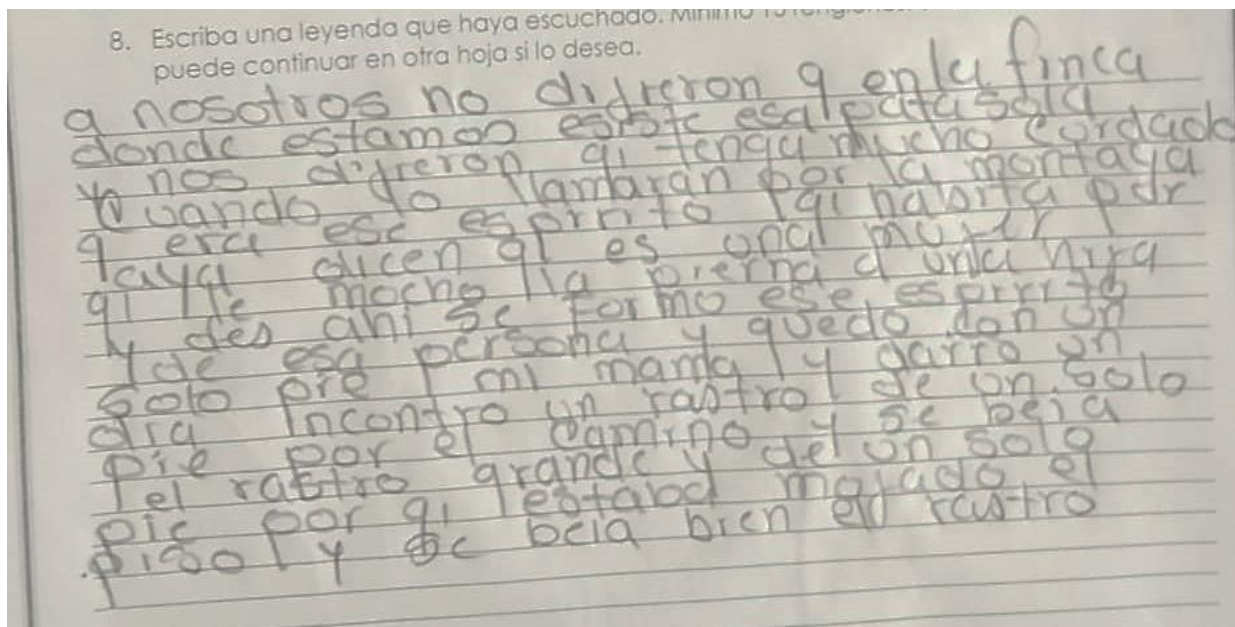 8. Escriba una leyenda que haya escuchado. Mínimo 15 renglones.
puede continuar en otra hoja si lo desea.
a nosotros no dijieron q en la finca
donde estamos esiste esa patasola
y nos dijieron qi tenga mucho cuidado
cuando yo llamaran por la montaya
q era ese espirito qi habia por
laya dicen qi es una mujer
qi le mocho la pierna a una hija
y des ahi se formo ese espirito
de esa persona y quedo con un
solo pie mi mama y garro un
dia incontro un rastro de un solo
pie por el camino y se beia
el rastro grande y del un solo
pie por qi estaba mojado el
piso y se beia bien el rastro